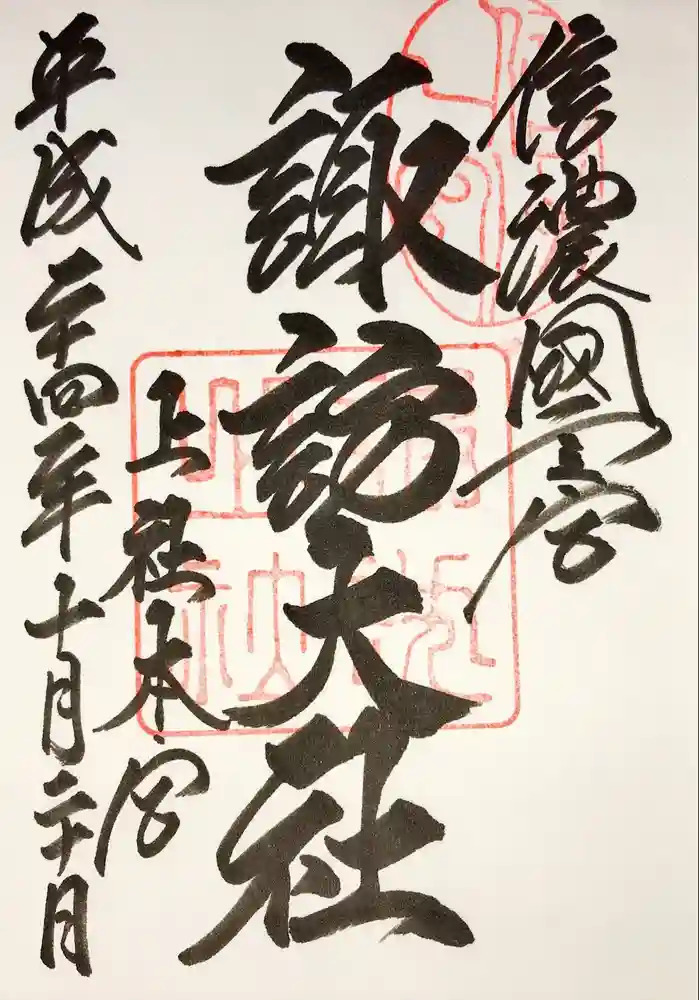 信濃國一之宮
諏訪大社
上社本宮
平成二十四年十月二十日